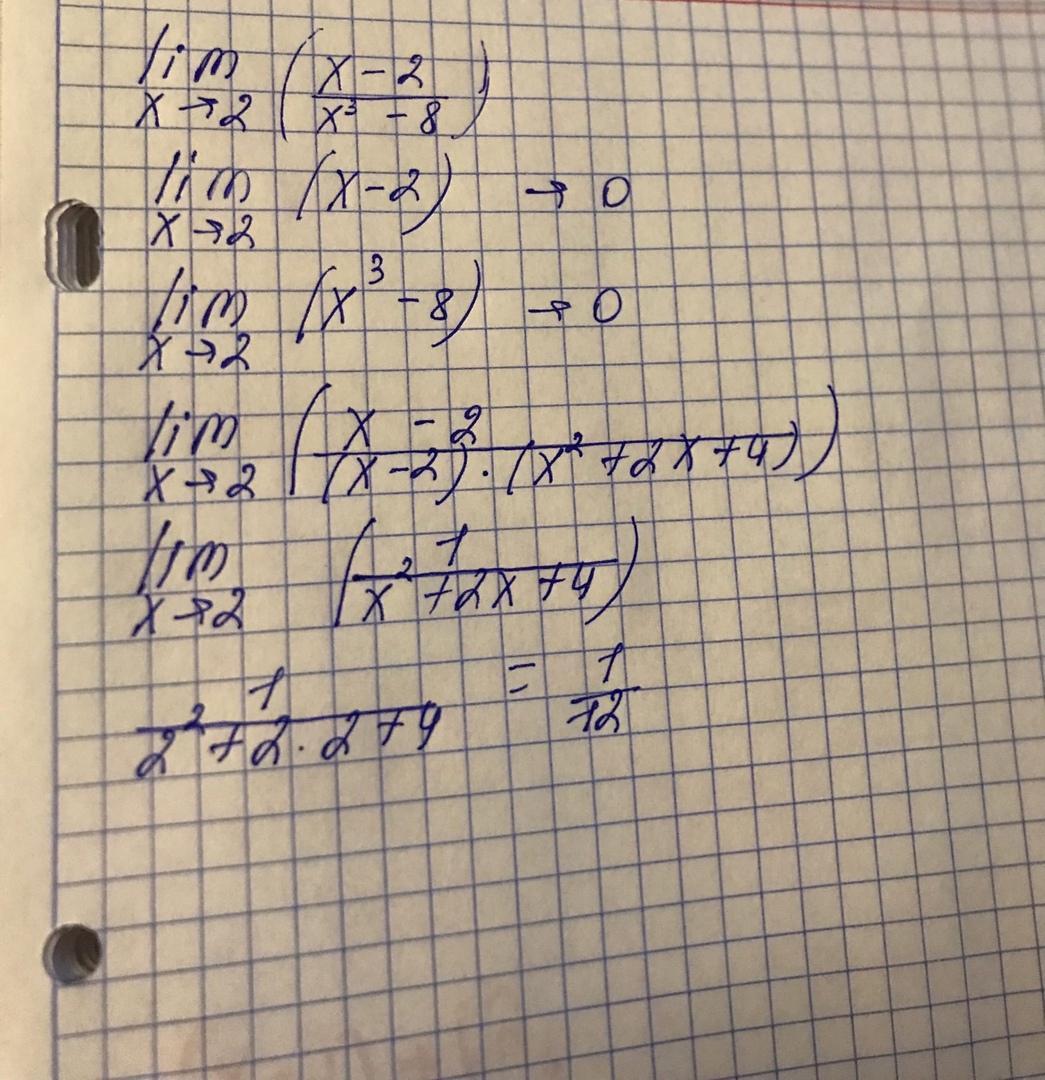 lim x→2 ( (x - 2) / (x³ - 8) )
lim x→2 (x - 2) → 0
lim x→2 (x³ - 8) → 0
lim x→2 ( (x - 2) / ((x - 2) · (x² + 2x + 4)) )
lim x→2 ( 1 / (x² + 2x + 4) )
1 / (2² + 2 · 2 + 4) = 1 / 12